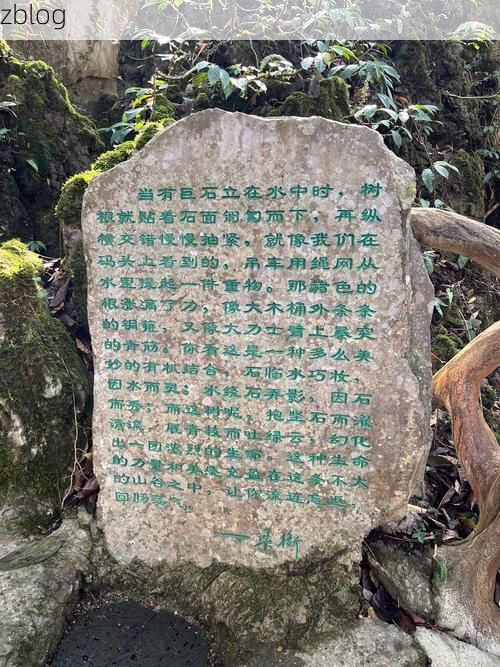 zblog
当有巨石立在水中时，树
根就贴着石面匍匐而下，再纵
横交错慢慢抽紧，就像我们在
码头上看到的，吊车用绳网从
水里提起一件重物。那赭色的
根涨满了力，像大木桶外条条
的铜箍，又像大力士臂上暴突
的青筋。你看这是一种多么美
妙的有机结合，石临水巧妆，
因水而灵；水绕石弄影，因石
而秀；而这树呢，抱坚石而濯
清流，展青枝而吐绿云，幻化
出一团浓烈的生命。这种生命
的力量和美掺充盈在这条不大
的山谷之中，让你流连忘返，
回肠荡气。
——梁衡